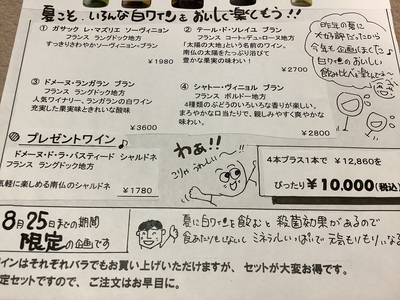 夏こそ、いろんな白ワインをおいしく楽しもう!!
① ガサック レ・マズリエ ソーヴィニョン
フランス ラングドック地方
すっきりさわやかソーヴィニョン・ブラン
¥1980
② テール・ド・ソレイユ ブラン
フランス コートデュローヌ地方
「太陽の大地」という名前のワイン。
南仏の太陽をたっぷり浴びて
豊かな果実の味わい!
¥2700
③ ドメーヌ・ランガラン ブラン
フランス ラングドック地方
人気ワイナリー、ランガランの白ワイン
充実した果実味ときれいな酸味
¥3600
④ シャトー・ヴィニョル ブラン
フランス ボルドー地方
4種類のぶどうのいろいろな香りが楽しく。
まろやかな口当たりで、親しみやすく爽やかな
味わい。
¥2800
昨年の夏に
大好評だったから
今年も企画しました
白ワインのおいしい
飲み比べ
プレゼントワイン
ドメーヌ・ド・ラ・バスティード シャルドネ
フランス ラングドック地方
気軽に楽しめる南仏のシャルドネ
¥1780
わぁ!!
こりゃ うれしい〜!!
4本プラス1本で ¥12,860を
ぴったり ¥10,000(税込)
8月25日までの期間
限定の企画です
夏に白ワインを飲むと殺菌効果があるので
食あたりもしないし ミネラルいっぱいで 元気もりもりになる
インはそれぞれバラでもお買い上げいただけますが、セットが大変お得です。
定セットですので、ご注文はお早目に。